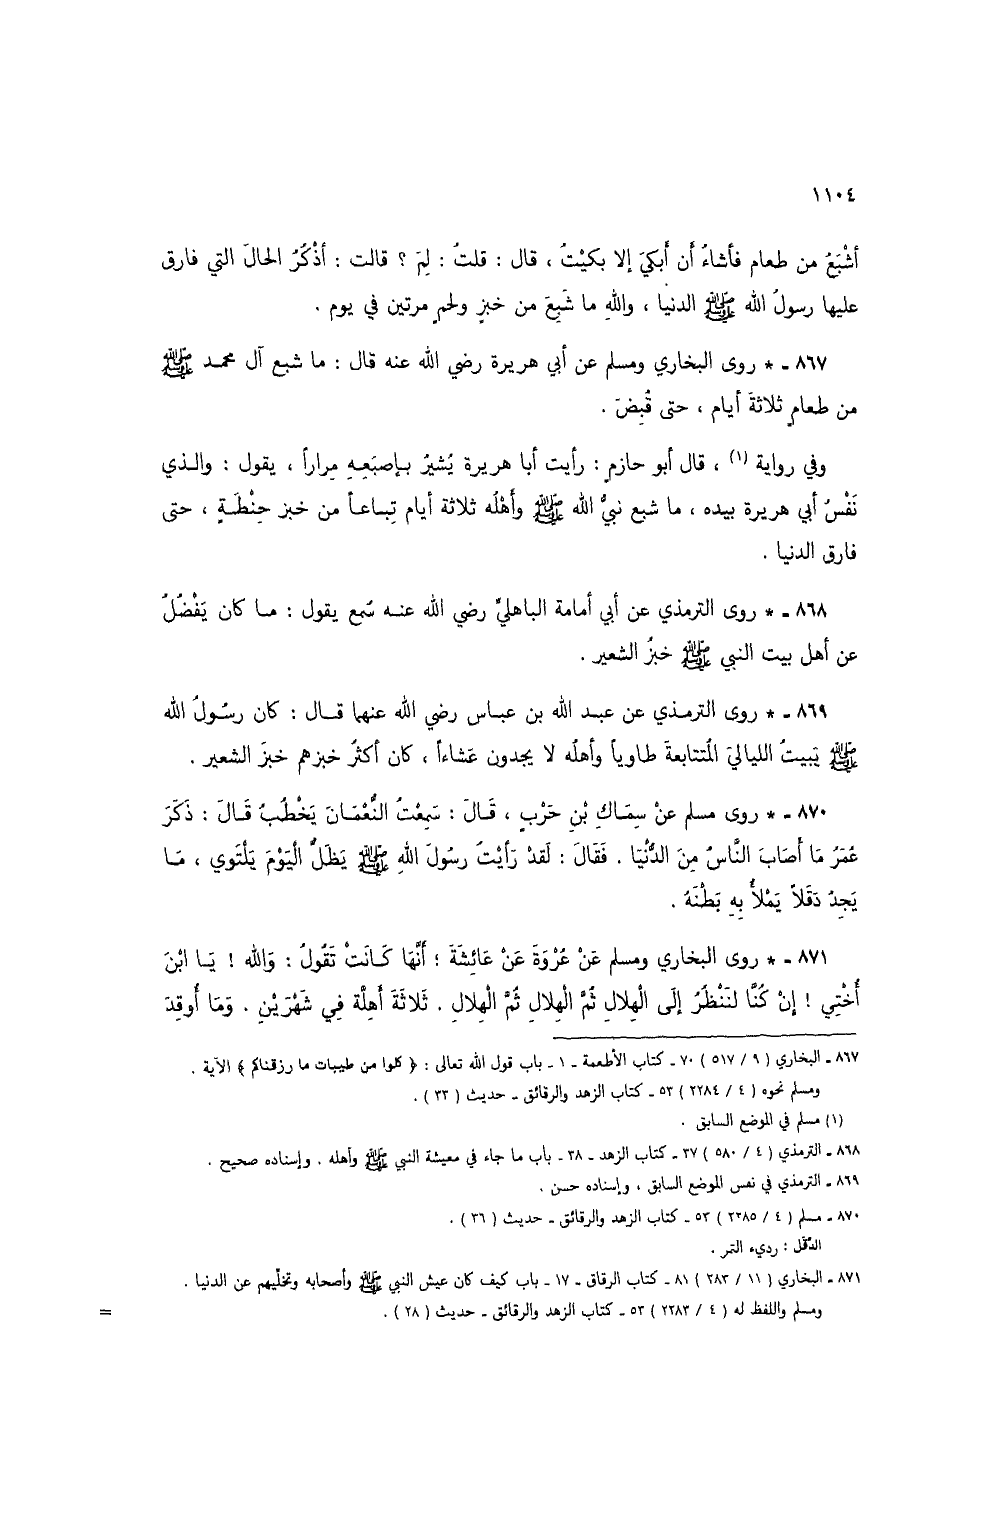 ١١٠٤
أشْبَعُ من طعام فأشاءُ أن أبكيَ إلا بكيْتُ ، قال : قلتُ : لِمَ ؟ قالت : أذْكُرُ الحالَ التي فارق
عليها رسولُ الله ﷺ الدنيا ، واللهِ ما شَبِعَ من خبزٍ ولحمٍ مرتين في يوم .
٨٦٧ ـ * روى البخاري ومسلم عن أبي هريرة رضي الله عنه قال : ما شبع آل محمد ﷺ
من طعامٍ ثلاثةَ أيام ، حتى قُبِضَ .
وفي رواية (١) ، قال أبو حازمٍ : رأيت أبا هريرة يُشيرُ بإصبَعِهِ مِراراً ، يقول : والذي
نَفْسُ أبي هريرة بيده ، ما شبع نبيُّ الله ﷺ وأهْلُه ثلاثة أيام تِباعاً من خبز حِنْطَةٍ ، حتى
فارق الدنيا .
٨٦٨ ـ * روى الترمذي عن أبي أمامة الباهليِّ رضي الله عنه سُمع يقول : ما كان يَفْضُلُ
عن أهل بيت النبي ﷺ خبزُ الشعير .
٨٦٩ ـ * روى الترمذي عن عبد الله بن عباس رضي الله عنهما قال : كان رسُولُ الله
ﷺ يَبيتُ اللياليَ المُتتابعةَ طاوياً وأهلُه لا يجدون عَشاءاً ، كان أكثرُ خبزهم خبزَ الشعير .
٨٧٠ ـ * روى مسلم عنْ سِمَاكِ بْنِ حَرْبٍ ، قَالَ : سَمِعْتُ النُّعْمَانَ يَخْطُبُ قَالَ : ذَكَرَ
عُمَرُ مَا أَصَابَ النَّاسُ مِنَ الدُّنْيَا . فَقَالَ : لَقدْ رَأيْتُ رسُولَ اللهِ ﷺ يَظَلُّ الْيَوْمَ يَلْتَوِي ، مَا
يَجِدُ دَقَلاً يَمْلأُ بِهِ بَطْنَهُ .
٨٧١ ـ * روى البخاري ومسلم عَنْ عُرْوَةَ عَنْ عَائِشَةَ ؛ أنَّهَا كَانَتْ تَقُولُ : وَالله ! يَا ابْنَ
أُخْتِي ! إنْ كُنَّا لنَنْظُرُ إلَى الْهِلالِ ثُمَّ الْهِلالِ ثُمَّ الْهِلالِ . ثَلاثَةَ أهِلَّة فِي شَهْرَيْنِ . وَمَا أُوقِدَ
٨٦٧ ـ البخاري ( ٩ / ٥١٧ ) ٧٠ ـ كتاب الأطعمة ـ ١ ـ باب قول الله تعالى : ﴿ كلوا من طيبات ما رزقناكم ﴾ الآية .
ومسلم نحوه ( ٤ / ٢٢٨٤ ) ٥٣ ـ كتاب الزهد والرقائق ـ حديث ( ٣٣ ) .
(١) مسلم في الموضع السابق .
٨٦٨ ـ الترمذي ( ٤ / ٥٨٠ ) ٣٧ ـ كتاب الزهد ـ ٣٨ ـ باب ما جاء في معيشة النبي ﷺ وأهله . وإسناده صحيح .
٨٦٩ ـ الترمذي في نفس الموضع السابق ، وإسناده حسن .
٨٧٠ ـ مسلم ( ٤ / ٢٢٨٥ ) ٥٣ ـ كتاب الزهد والرقائق ـ حديث ( ٣٦ ) .
الدَّقَل : رديء التمر .
٨٧١ ـ البخاري ( ١١ / ٢٨٣ ) ٨١ ـ كتاب الرقاق ـ ١٧ ـ باب كيف كان عيش النبي ﷺ وأصحابه وتخلّيهم عن الدنيا .
ومسلم واللفظ له ( ٤ / ٢٢٨٣ ) ٥٣ ـ كتاب الزهد والرقائق ـ حديث ( ٢٨ ) .
=